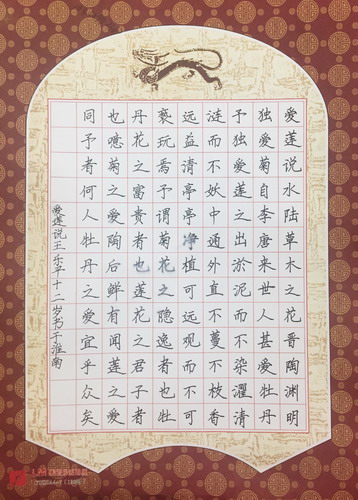 爱莲说水陆草木之花晋陶渊明
独爱菊自李唐来世人甚爱牡丹
予独爱莲之出淤泥而不染濯清
涟而不妖中通外直不蔓不枝香
远益清亭亭净植可远观而不可
亵玩焉予谓菊花之隐逸者也牡
丹花之富贵者也莲花之君子者
也噫菊之爱陶后鲜有闻莲之爱
同予者何人牡丹之爱宜乎众矣
爱莲说王乐平十二岁书于淮南